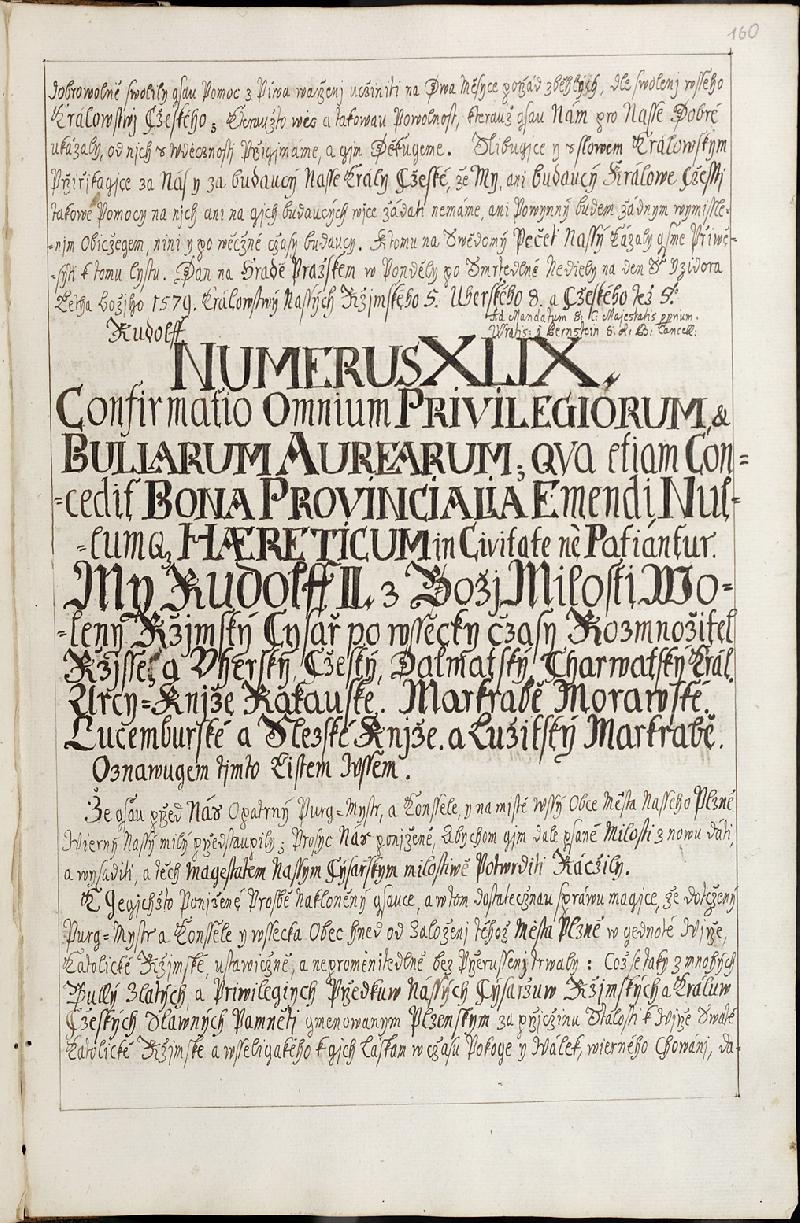 160
dobrowolně swolily gsau Pomoc z Piwa wařzenj učziniti na Dwa Měsyce pořzád zběhlych, dle swolenj wsseho
Králowstwj Cžeského; Kteraužto wec a takowau Powolnost, kterauž gsau Nám pro Nasse Dobré
ukázaly, od nich s wdečznosti Přzigjmáme, a gjm Děkugeme. Slibugice y slowem Králowským
Přžiřjkagjce za Nás y za budaucý Nasse Krály Cžeské, že My, ani budaucý Králowe Cžesstj
takowe Pomocy na nich ani na gjch budaucých wjce žádati nemáme, ani Powynnj budem žádnym wymissle-
-njm Običzegem, nini y po wěčzné cžasy budaucy. Ktomu na Swědomj Pečet Nassý kázaly gsme Přiwě-
-syti k tomu lystu. Dan na Hradě Pražském w Pondělý po Smrtedlné Neděly na den S. Yzidora
Létha božiho 1579. Králowstwj Nassých Ržjmského 5. Uherského 8. a Cžeského též 5.
Ad Mandatum S. C. Majestatis ppnum.
Rudolff
Wratis: à Bernstein S. R. B. Cancell.
NUMERUS XLIX.
Confirmatio Omnium PRIVILEGIORUM, &
BULLARUM AUREARUM; QVA etiam Con=
=cedit BONA PROVINCIALIA Emendi Nul-
=lumq; HÆRETICUM in Civitate nè Patiántur.
My Rudolff II. z Božj Milosti Wo=
-lený Ržjmský Cysař po wssecky cžasy Rozmnožitel
Ržjsse, a Vherský, Cžeský, Dalmatský, Charwatský Král.
Arcy=Knjže Rakauské. Markrabě Morawské.
Lucemburské a Slezské Knjže. a Lužitský Markrabě.
Oznamugem tjmto Listem Wssem.
Že gsau przed Nás Opatrný Purg=Mystr, a Konssele, y na mistě wssý Obce Města Nasseho Plzně
Wierný Nassý milý předstaupily; Prosyc Nás ponjženě, Abychom gjm dale psané Milosti z nowu dáti,
a wysaditi, a těch Magestátem Nassym Cýsařskym milostiwě Potwrditi Ráčžily.
K Gegjchžto Ponjžené Prosbě nakloněný gsauce, a w tom dostatecžnau sprawu magjce, že dotčzený
Purg=Mystr a Konssele y wssecka Obec hned od Založenj téhož Města Plzně w gednotě Wjře,
Katolické Ržjmské, ustawičzně, a nepromenitedlně bez Pržerussenj trwaly: Cožse taky z mnohých
Bullý Zlatých a Priwilegijch Pržedkuw Nassých Cýsařžuw Ržjmských a Králuw
Cžeských Slawných Pamětj gmenowanym Plzenským za přjcžinu Stálosti k Wjře Swaté
Katolické Ržjmské a wsseligakého k gjch Láskam w cžasu Pokoge y Wálek, wierného Chowánj, da-